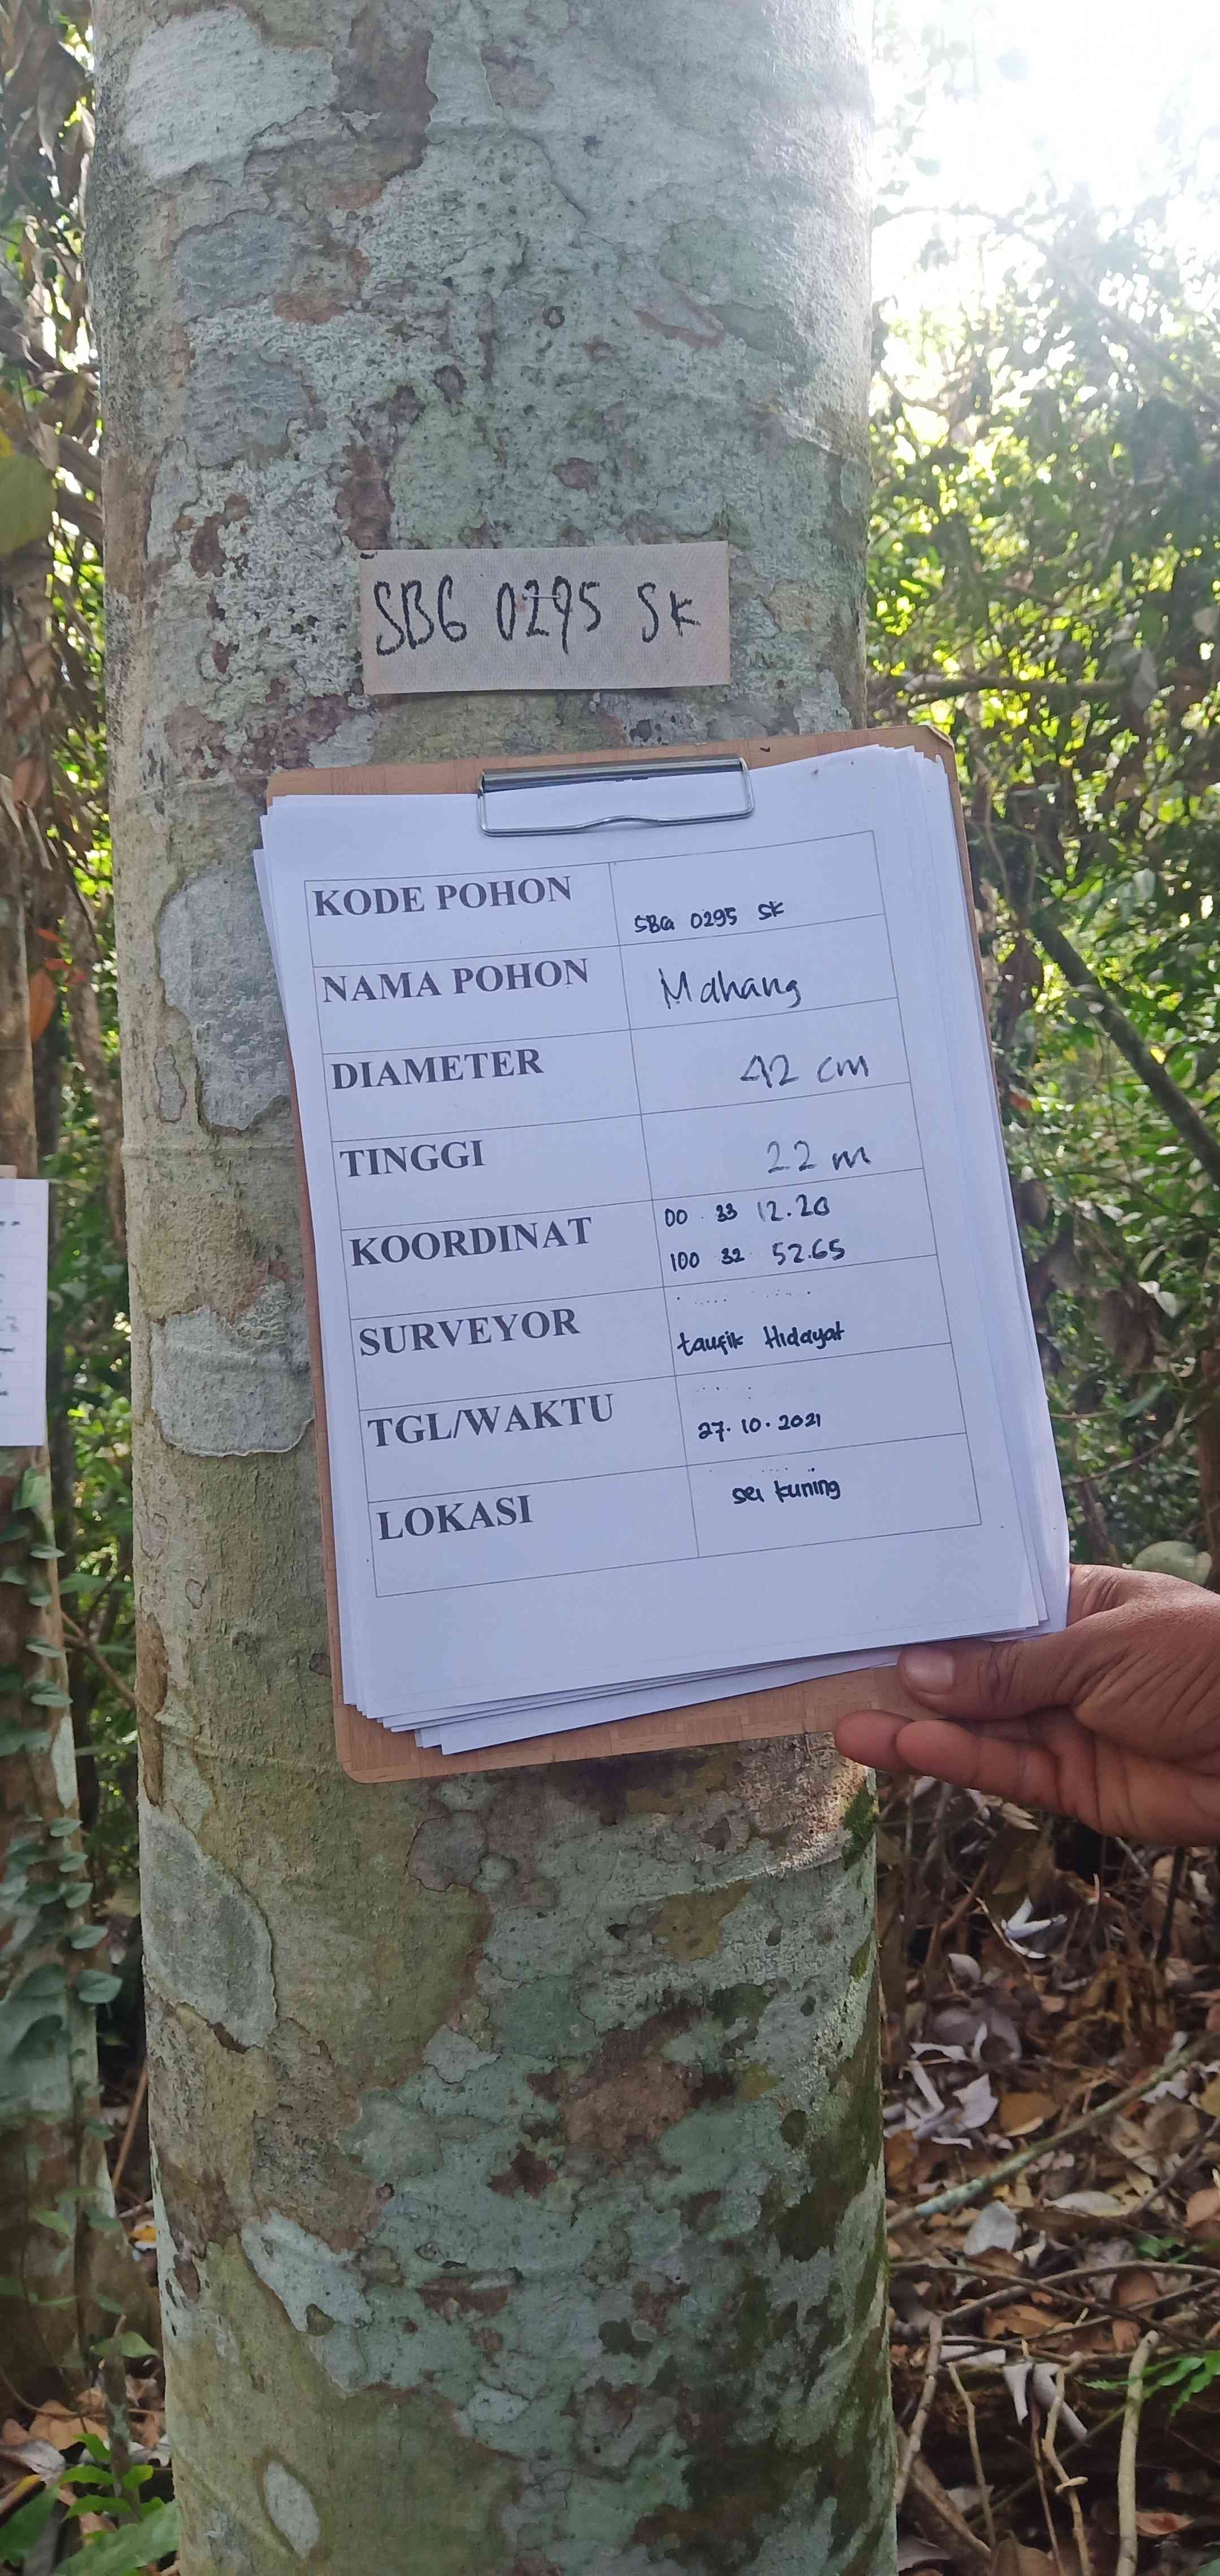 SBG 0295 SK
KODE POHON SBG 0295 SK
NAMA POHON Mahang
DIAMETER 42 cm
TINGGI 22 m
KOORDINAT 00 33 12.28
100 32 52.65
SURVEYOR taufik Hidayat
TGL/WAKTU 27.10.2021
LOKASI sei kuning